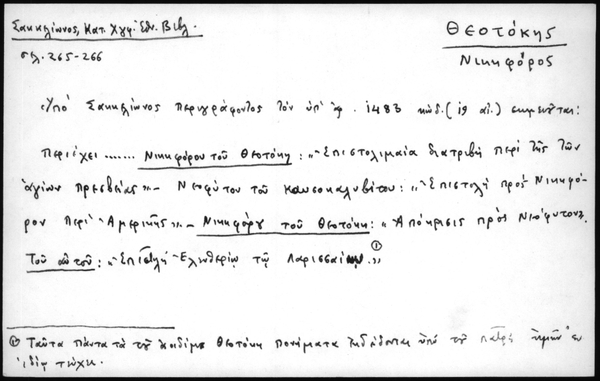 Σακκελίωνος, Κατ. Χγφ. Εθν. Βιβλ.
σελ. 265-266
ΘΕΟΤΌΚΗΣ
ΝΙΚΗΦΌΡΟΣ
Υπό Σακκελίωνος περιγράφοντος τον υπ' αρ. 1483 κώδ. (ιθ αι.) σημειούται:
Περιέχει ....... Νικηφόρου του Θεοτόκη: "Επιστολιμαία διατριβή περί της των
αγίων πρεσβείας" - Νεοφύτου του Καυσοκαλυβίτου: "Επιστολή προς Νικηφό-
ρον περί Αμερικής" - Νικηφόρου του Θεοτόκη: "Απόκρισις προς Νεόφυτον".
Του αυτού: "Επιστολή Ελευθερίῳ τῷ Λαρισσαίῳ." (1)
(1) Ταύτα πάντα τα του αοιδίμου Θεοτόκη πονήματα εκδέδονται υπό του ημών εν
ιδίῳ τεύχει.